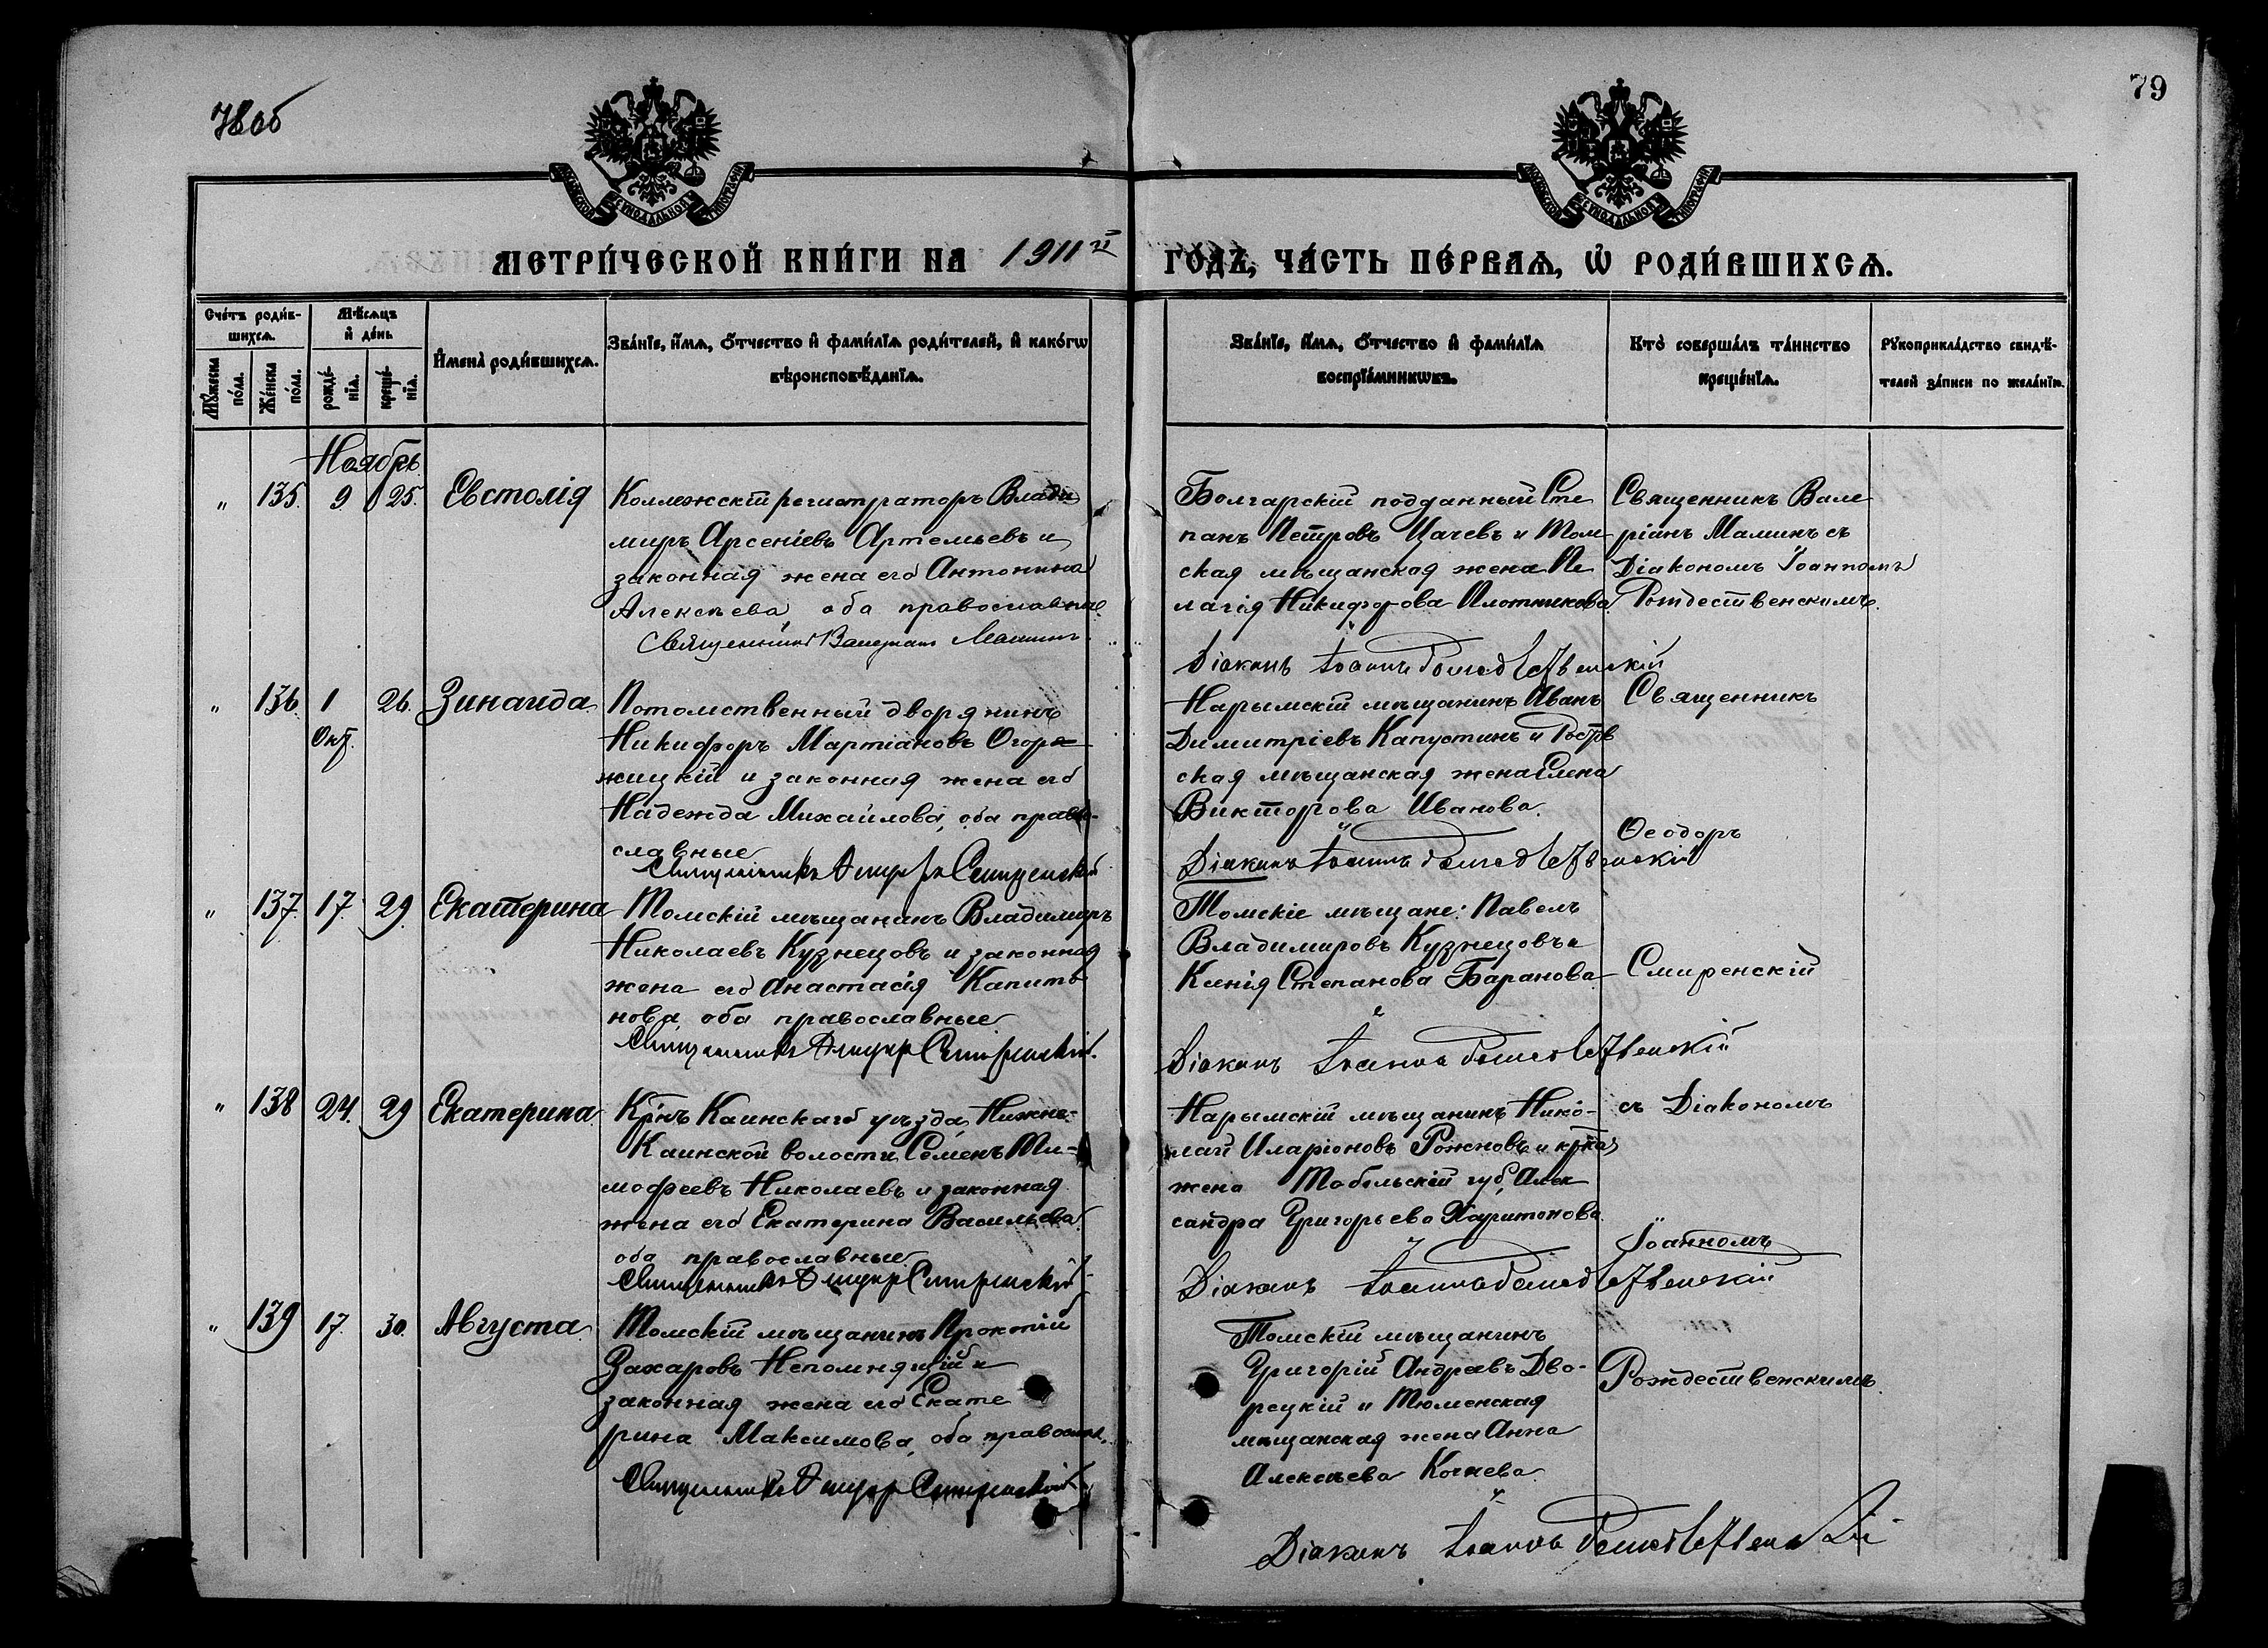 78об
79
МОСКОВСКОЙ СѴНОДАЛЬНОЙ ТИПОГРАФІИ
МОСКОВСКОЙ СѴНОДАЛЬНОЙ ТИПОГРАФІИ
МЕТРИ́ЧЕСКОЙ КНИ́ГИ НА 1911й ГО́ДЪ, ЧА́СТЬ ПЕ́РВАѦ, Ѡ҆ РОДИ́ВШИХСѦ.
Сче́тъ роди́в-
шихсѧ.
Мꙋ́жеска по́ла.
Же́нска по́ла.
Мѣ́сѧцъ
и҆ де́нь
рожде́-
нїѧ.
креще́-
нїѧ.
И҆мена̀ роди́вшихсѧ.
Зва́нїе, и҆́мѧ, ѻ҆́тчество и҆ фами́лїѧ роди́телей, и҆ како́гѡ
вѣроисповѣ́данїѧ.
Зва́нїе, и҆́мѧ, ѻ҆́тчество и҆ фами́лїѧ
воспрїе́мникѡвъ.
Кто̀ соверша́лъ та́инство
креще́нїѧ.
Рꙋкоприкла́дство свидѣ́-
телей за́писи по жела́нїю.
Ноябрь.
" 135. 9 25. Евстолія
Коллежскій регистраторъ Влади
миръ Арсеніевъ Артемьевъ и
законная жена его Антонина
Алексѣева, оба православные
Священникъ Валеріанъ Маминъ.
Болгарскій подданный Сте
панъ Петровъ Цачевъ и Том
ская мѣщанская жена Пе
лагія Никифорова Плотникова.
Діаконъ Іоаннъ Рождественскій
Священникъ Вале
ріанъ Маминъ съ
Діакономъ Іоанномъ
Рождественскимъ.
" 136 1 26. Зинаида.
Окт.
Потомственный дворянинъ
Никифоръ Мартіановъ Огоре
жицкій и законная жена его
Надежда Михайлова, оба право-
славные
Священникъ Ѳеодоръ Смиренскій
Нарымскій мѣщанинъ Иванъ
Димитріевъ Капустинъ и Ростов
ская мѣщанская жена Елена
Викторова Иванова.
Діаконъ Іоаннъ Рождественскій
Священникъ
Ѳеодоръ
" 137. 17. 29. Екатерина
Томскій мѣщанинъ Владимиръ
Николаевъ Кузнецовъ и законная
жена его Анастасія Капито
нова, оба православные
Священникъ Ѳеодоръ Смиренскій.
Томскіе мѣщане: Павелъ
Владимировъ Кузнецовъ и
Ксенія Степанова Баранова
Діаконъ Іоаннъ Рождественскій
Смиренскій
" 138 24. 29 Екатерина.
Кр̃нъ Каинскаго уѣзда, Нижне-
Каинской волости, Семенъ Ти-
мофеевъ Николаевъ и законная
жена его Екатерина Васильева
оба православные.
Священникъ Ѳеодоръ Смиренскій
Нарымскій мѣщанинъ Нико-
лай Иларіоновъ Рожновъ и кр̃кая
жена Тобольскій губ., Алек
сандра Григорьева Харитонова.
Діаконъ Іоаннъ Рождественскій
съ Діакономъ
Іоанномъ
" 139 17. 30. Августа
Томскій мѣщанинъ Прокопій
Захаровъ Непомнящій и
законная жена его Екате
рина Максимова, оба правосл.
Священникъ Ѳеодоръ Смиренскій
Томскій мѣщанинъ
Григорій Андреевъ Дво-
рецкій и Тюменская
мѣщанская жена Анна
Алексѣева Кочнева.
Діаконъ Іоаннъ Рождественскій
Рождественскимъ.